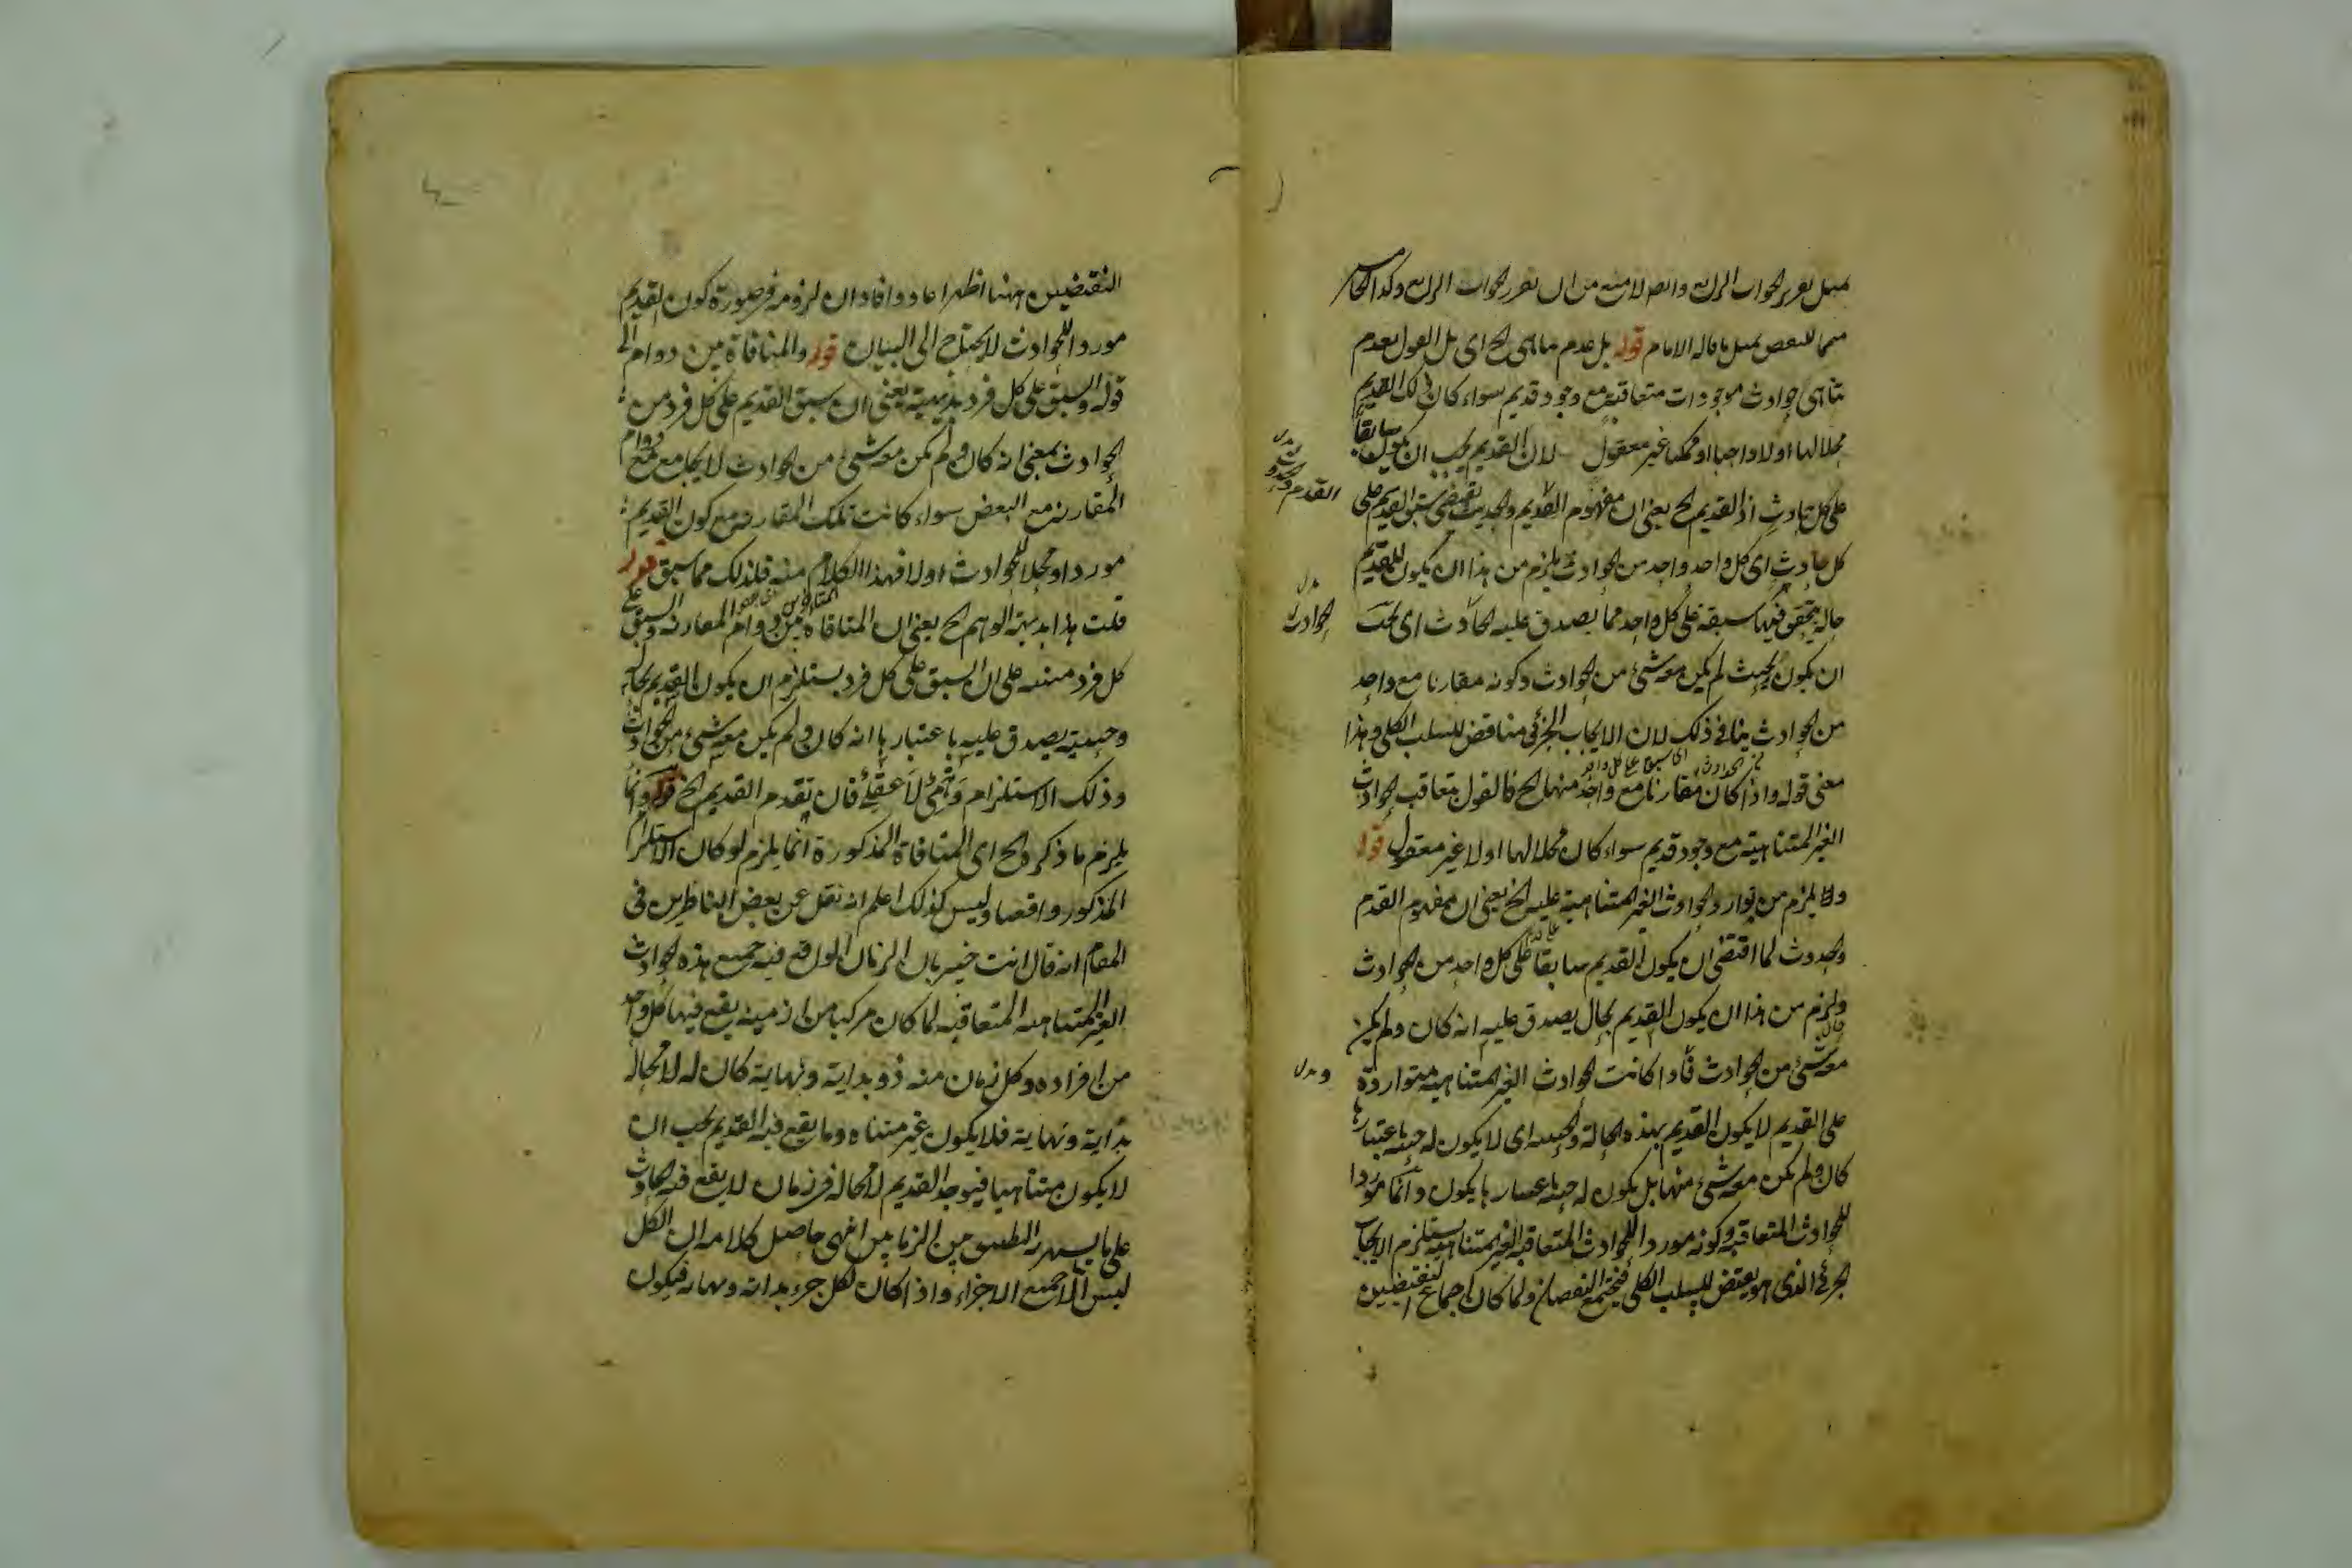 بمثل تقرير الجواب الرابع
مما للنقض بمثل ما قاله الامام قوله بل عدم تناهى الخ اى بل القول بعدم
تناهى حوادث موجودات متعاقبة مع وجود قديم سواء كان ذلك القديم
محلا لها اولا واجبا او ممكنا غير معقول لان القديم يجب ان يكون سابقا
على كل حادث اذ القديم الخ يعنى ان مفهوم القديم والحديث يقتضى سبق القديم على
كل حادث اى كل واحد واحد من الحوادث يلزم من هذا ان يكون للقديم
حالة يتحقق فيها سبقه على كل واحد مما يصدق عليه الحادث اى يجب
ان يكون بحيث لم يكن معه شئ من الحوادث وكونه مقارنا مع واحد
من الحوادث ينافى ذلك لان الايجاب الجزئى مناقض للسلب الكلى وهذا
معنى قوله واذا كان مقارنا مع واحد منها الخ فالقول بتعاقب الحوادث
الغير المتناهية مع وجود قديم سواء كان محلا لها اولا غير معقول قوله
ولا يلزم من توارد الحوادث الغير المتناهية عليه الخ يعنى ان مفهوم القدم
والحدوث لما اقتضى ان يكون القديم سابقا على كل واحد من الحوادث
ولزم من هذا ان يكون القديم بحال يصدق عليه انه كان ولم يكن
معه شئ من الحوادث فاذا كانت الحوادث الغير المتناهية متواردة
على القديم لا يكون القديم بهذه الحالة والحيثية اى لا يكون له حيثية باعتبارها
كان ولم يكن معه شئ منها بل يكون له حيثية باعتبارها يكون دائما موردا
للحوادث المتعاقبة وكونه موردا للحوادث المتعاقبة الغير المتناهية يستلزم الايجاب
الجزئى الذى هو نقيض للسلب الكلى فيجتمع النقيضان ولما كان اجتماع النقيضين
القدم والحدوث
الحوادث
النقيضين ههنا اظهر اعاد وافاد ان لزومه فى صورة كون القديم
موردا للحوادث لا يحتاج الى البيان قوله والمنافاة بين دوام الخ
قوله والسبق على كل فرد بديهية يعنى ان سبق القديم على كل فرد من
الحوادث بمعنى انه كان ولم يكن معه شئ من الحوادث لا يجامع مع دوام
المقارنة مع البعض سواء كانت تلك المقارنة مع كون القديم
موردا ومحلا للحوادث اولا فهذا الكلام منه فذلك مما سبق قوله
قلت هذا بديهة الوهم الخ يعنى ان المنافاة بين دوام المقارنة والسبق على
كل فرد مبتنية على ان السبق على كل فرد يستلزم ان يكون القديم بحالة
وحيثية يصدق عليه باعتبارها انه كان ولم يكن معه شئ من الحوادث
وذلك الاستلزام وهمى لا عقلى فان تقدم القديم الخ قوله وانما
يلزم ما ذكره الخ اى المنافاة المذكورة انما يلزم لو كان الاستلزام
المذكور واقعا وليس كذلك اعلم انه نقل عن بعض الناظرين فى
المقام انه قال انت خبير بان الزمان الواقع فيه جميع هذه الحوادث
الغير المتناهية المتعاقبة لما كان مركبا من ازمنة يقع فيها كل واحد
من افراده وكل زمان منه ذو بداية ونهاية كان له لا محالة
بداية ونهاية فلا يكون غير متناه وما يقع فيه القديم يجب ان
لا يكون متناهيا فيوجد القديم لا محالة فى زمان لا يقع فيه الحادث
على ما يشهد به التطبيق بين الزمانين انتهى حاصل كلامه ان الكل
ليس الا جميع الاجزاء واذا كان لكل جزء بداية ونهاية فيكون